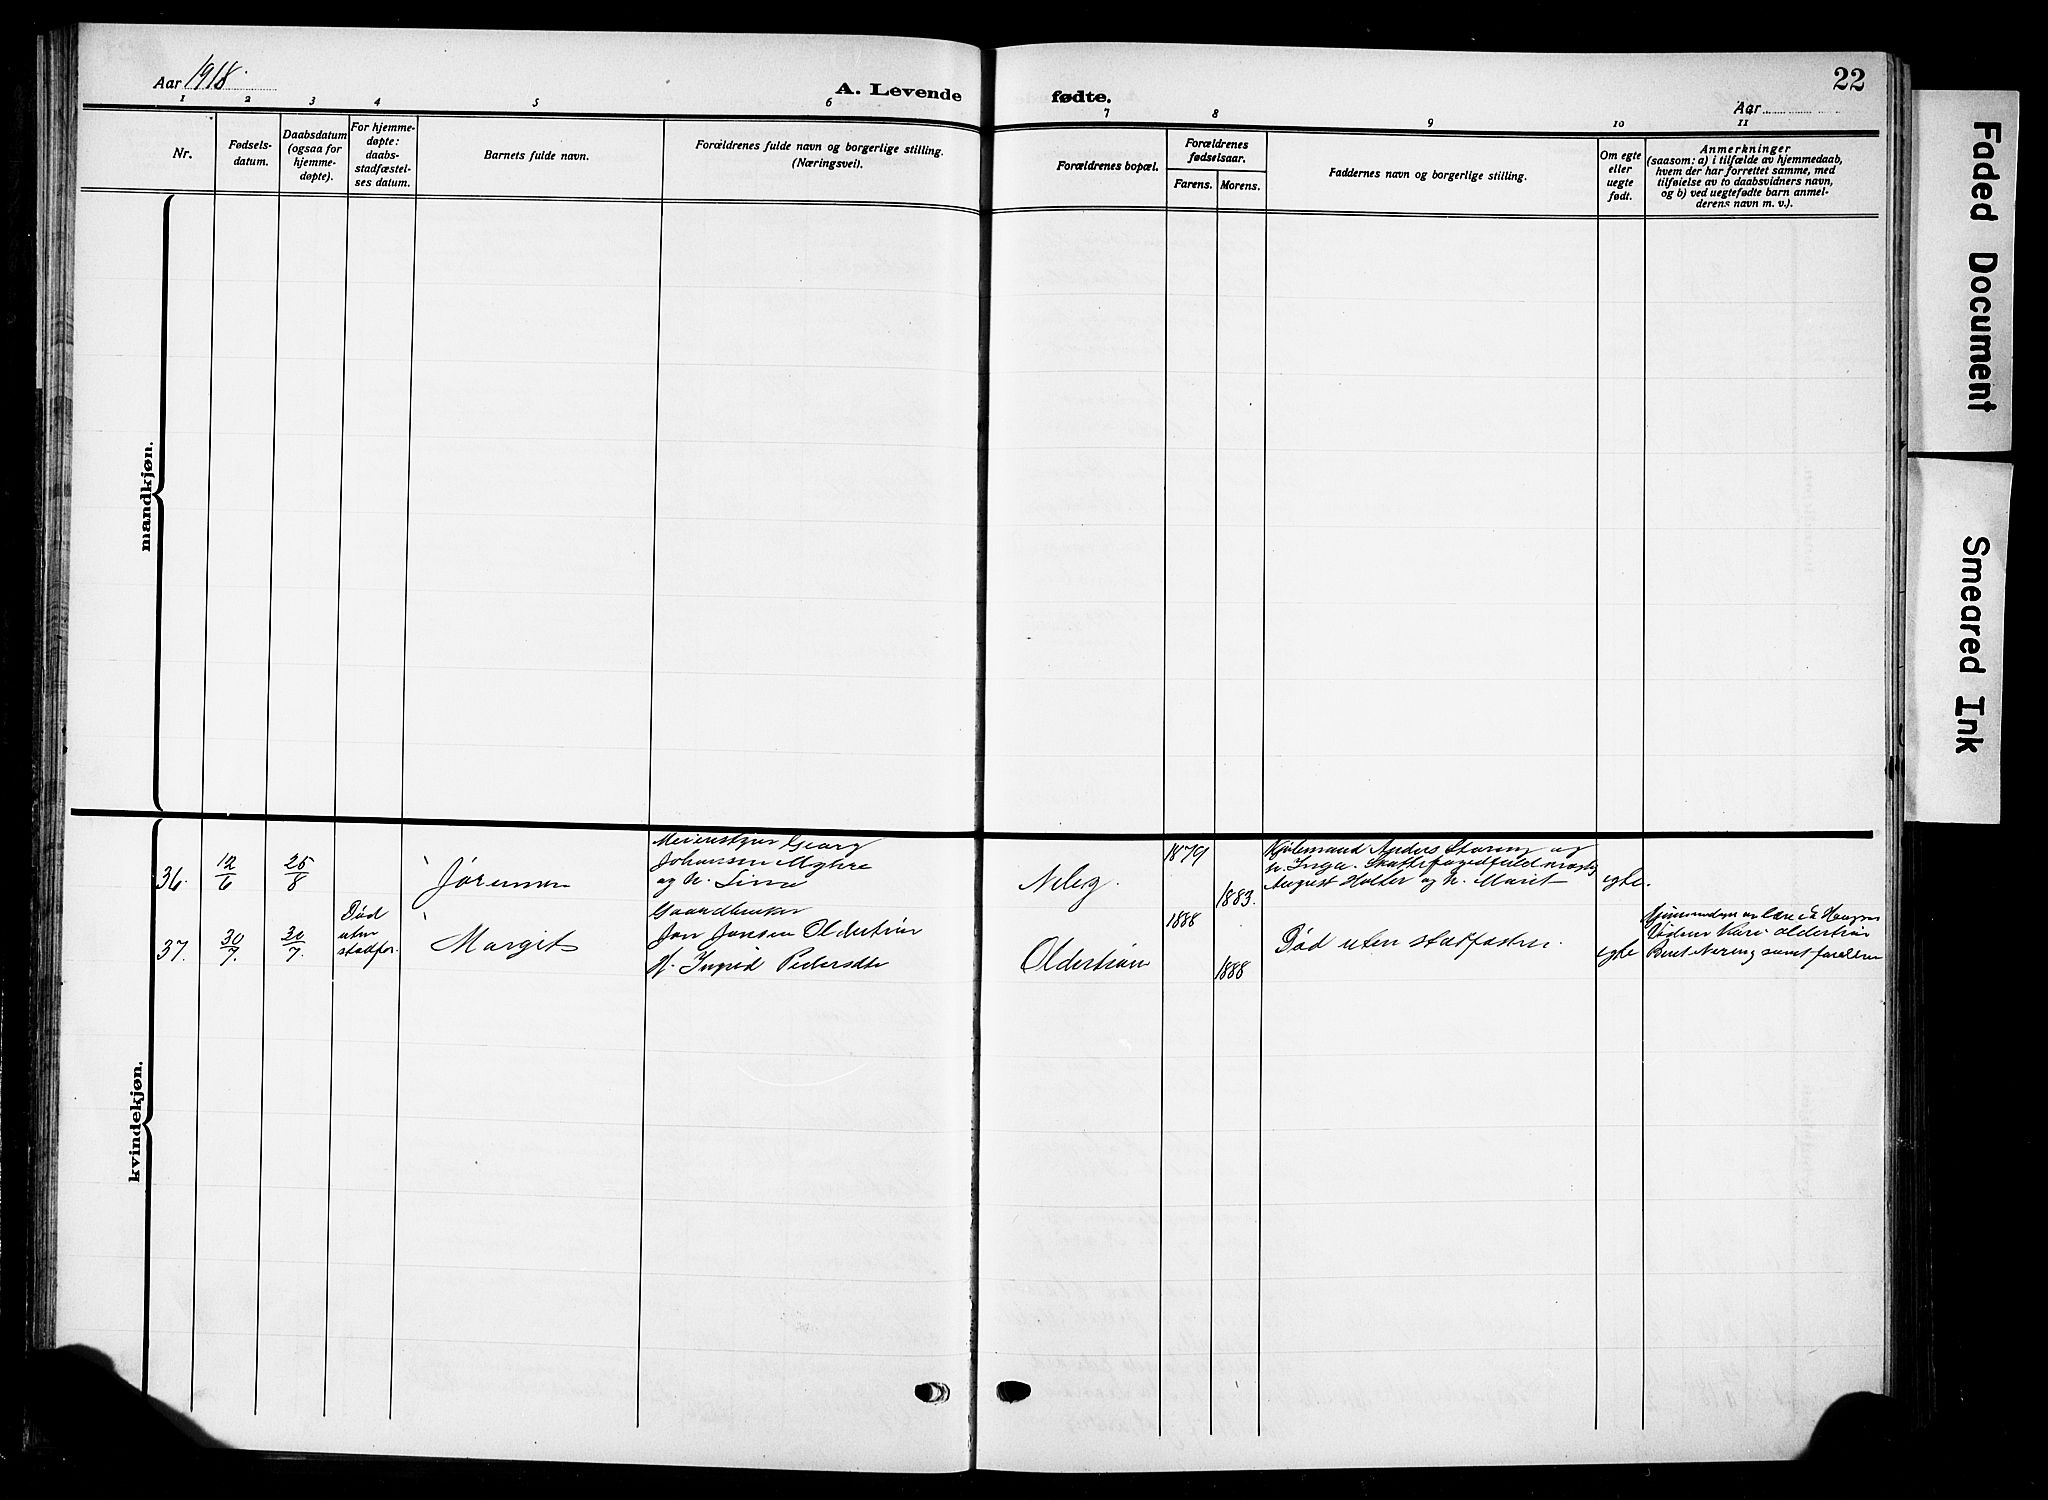 Aar 1918.
A. Levende fødte.
22
Aar
1 2 3 4 5 6 7 8 9 10 11
Nr.
Fødsels-
datum.
Daabsdatum
(ogsaa for
hjemme-
døpte).
For hjemme-
døpte:
daabs-
stadfæstel-
ses datum.
Barnets fulde navn.
Forældrenes fulde navn og borgerlige stilling.
(Næringsvei).
Forældrenes bopæl.
Forældrenes
fødselsaar.
Farens. Morens.
Faddernes navn og borgerlige stilling.
Om egte
eller
uegte
født.
Anmerkninger
(saasom: a) i tilfælde av hjemmedaab,
hvem der har forrettet samme, med
tilføielse av to daabsvidners navn,
og b) ved uegtefødte barn anmel-
derens navn m. v.).
mandkjøn.
kvindekjøn.
36.
12/6
25/8
Georg
Johansen
og h. Line
1879
1883.
Anders Storeng og
h. Inga.
August Holter og h. Marit
egte.
37.
30/7.
30/7.
Død
uten
stadfæ-
Margit
Gaardbruker
Jon Jonsen Oldertrøn
H. Ingrid Pedersdtr
Oldertrøn
1888
1888
Død uten stadfæstelse.
egte
Kari Oldertrøn
Beret samt forældrene
Faded Document
Smeared Ink